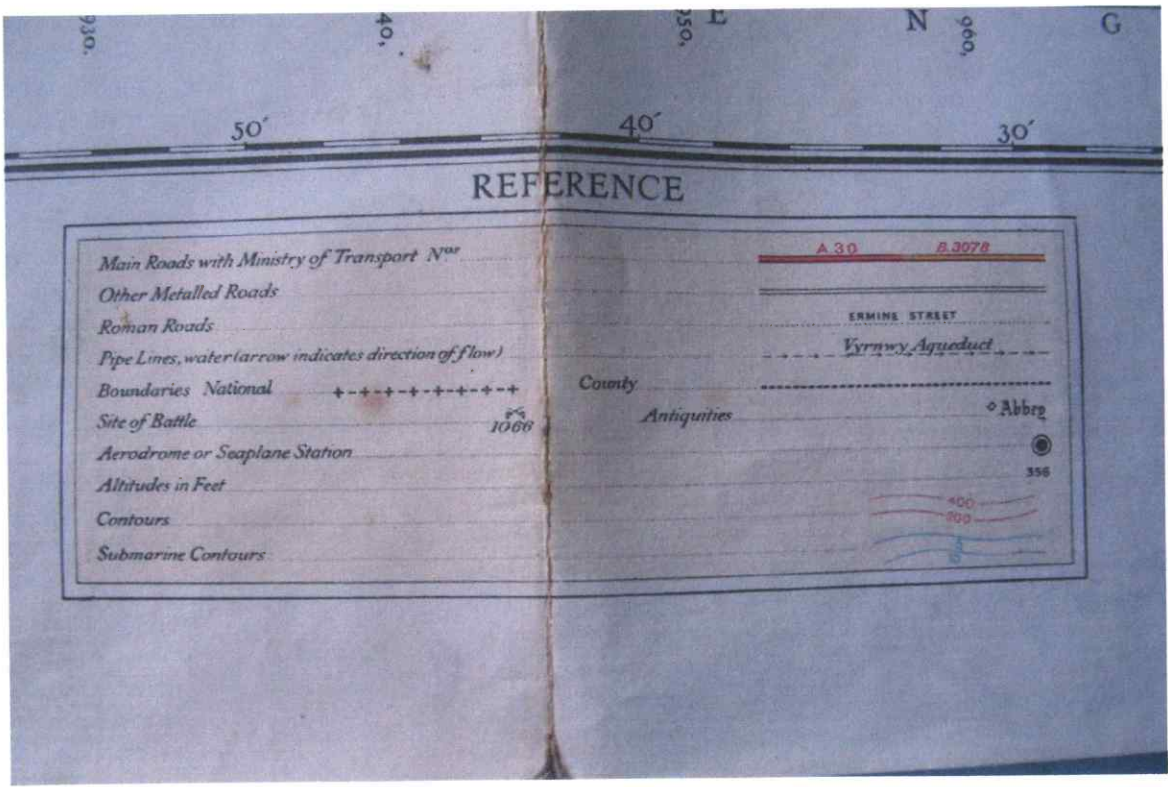 930. 40, 950, E N 960, G
50′ 40′ 30′
REFERENCE
Main Roads with Ministry of Transport Nos A 30 B.3078
Other Metalled Roads
Roman Roads ERMINE STREET
Pipe Lines, water (arrow indicates direction of flow) Vyrnwy Aqueduct
Boundaries National County
Site of Battle 1066 Antiquities Abbey
Aerodrome or Seaplane Station
Altitudes in Feet 356
Contours 400
Submarine Contours